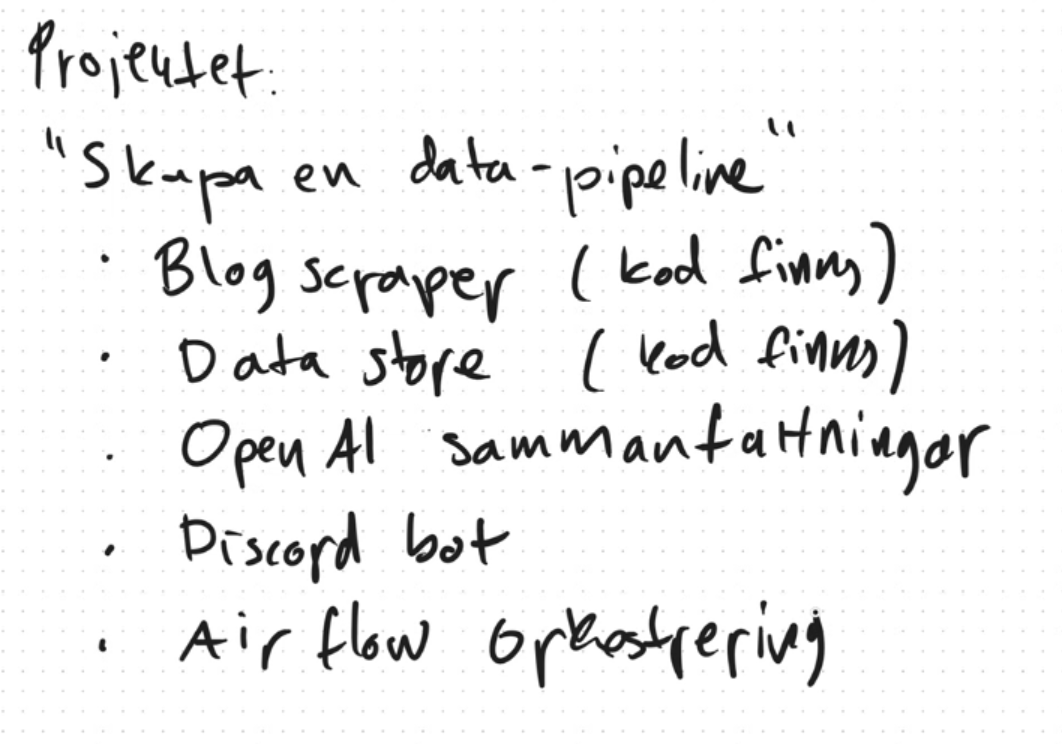 Projektet.
"Skapa en data-pipeline"
· Blog scraper (kod finns)
· Data store (kod finns)
· Open AI sammanfattningar
· Discord bot
· Air flow orkestrering